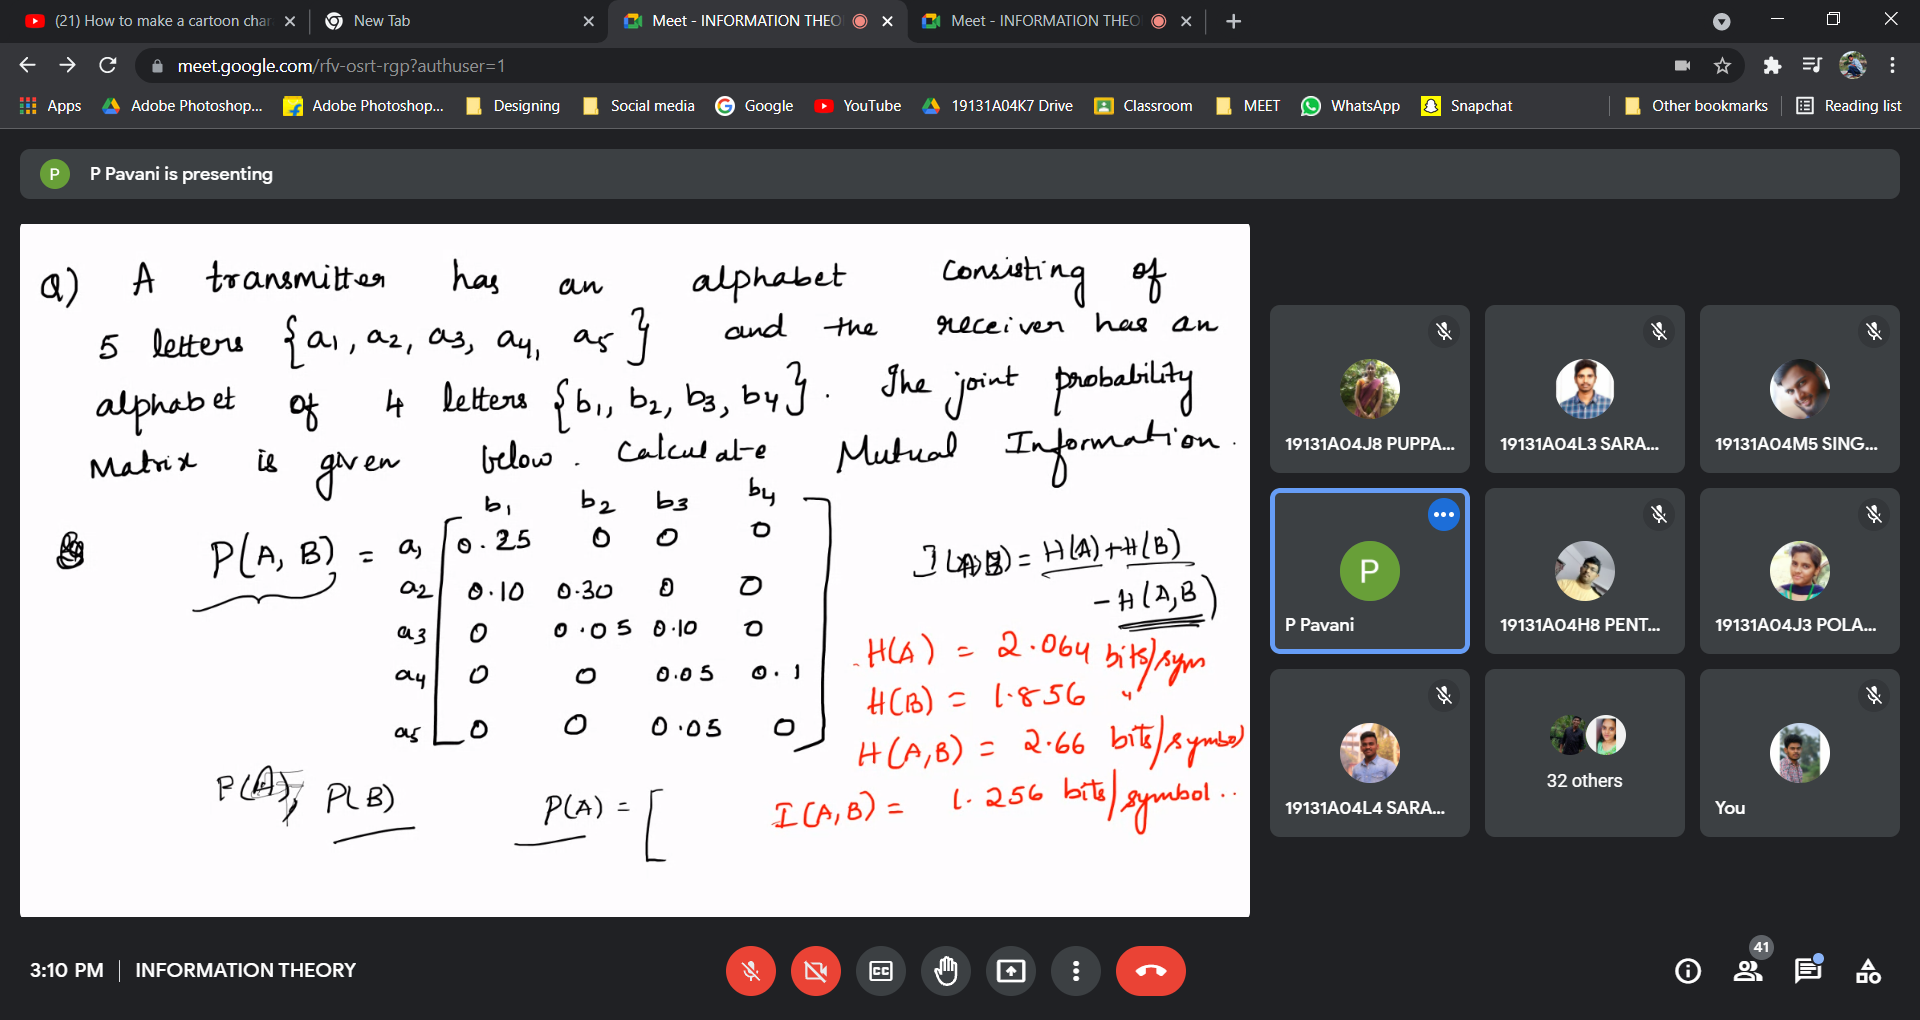 (21) How to make a cartoon char
New Tab
Meet - INFORMATION THEO
Meet - INFORMATION THEO
meet.google.com/rfv-osrt-rgp?authuser=1
Apps
Adobe Photoshop...
Adobe Photoshop...
Designing
Social media
Google
YouTube
19131A04K7 Drive
Classroom
MEET
WhatsApp
Snapchat
Other bookmarks
Reading list
P
P Pavani is presenting
Q) A transmitter has an alphabet consisting of
5 letters {a1, a2, a3, a4, a5} and the receiver has an
alphabet of 4 letters {b1, b2, b3, b4}. The joint probability
Matrix is given below. Calculate Mutual Information.
b1 b2 b3 b4
P(A, B) = a1 0.25 0 0 0
a2 0.10 0.30 0 0
a3 0 0.05 0.10 0
a4 0 0 0.05 0.1
a5 0 0 0.05 0
I(A,B) = H(A) + H(B)
- H(A,B)
H(A) = 2.064 bits/sym
H(B) = 1.856 "
H(A,B) = 2.66 bits/symbol
I(A,B) = 1.256 bits/symbol..
P(A), P(B)
P(A) = [
19131A04J8 PUPPA...
19131A04L3 SARA...
19131A04M5 SING...
P
P Pavani
19131A04H8 PENT...
19131A04J3 POLA...
19131A04L4 SARA...
32 others
You
3:10 PM
INFORMATION THEORY
CC
41